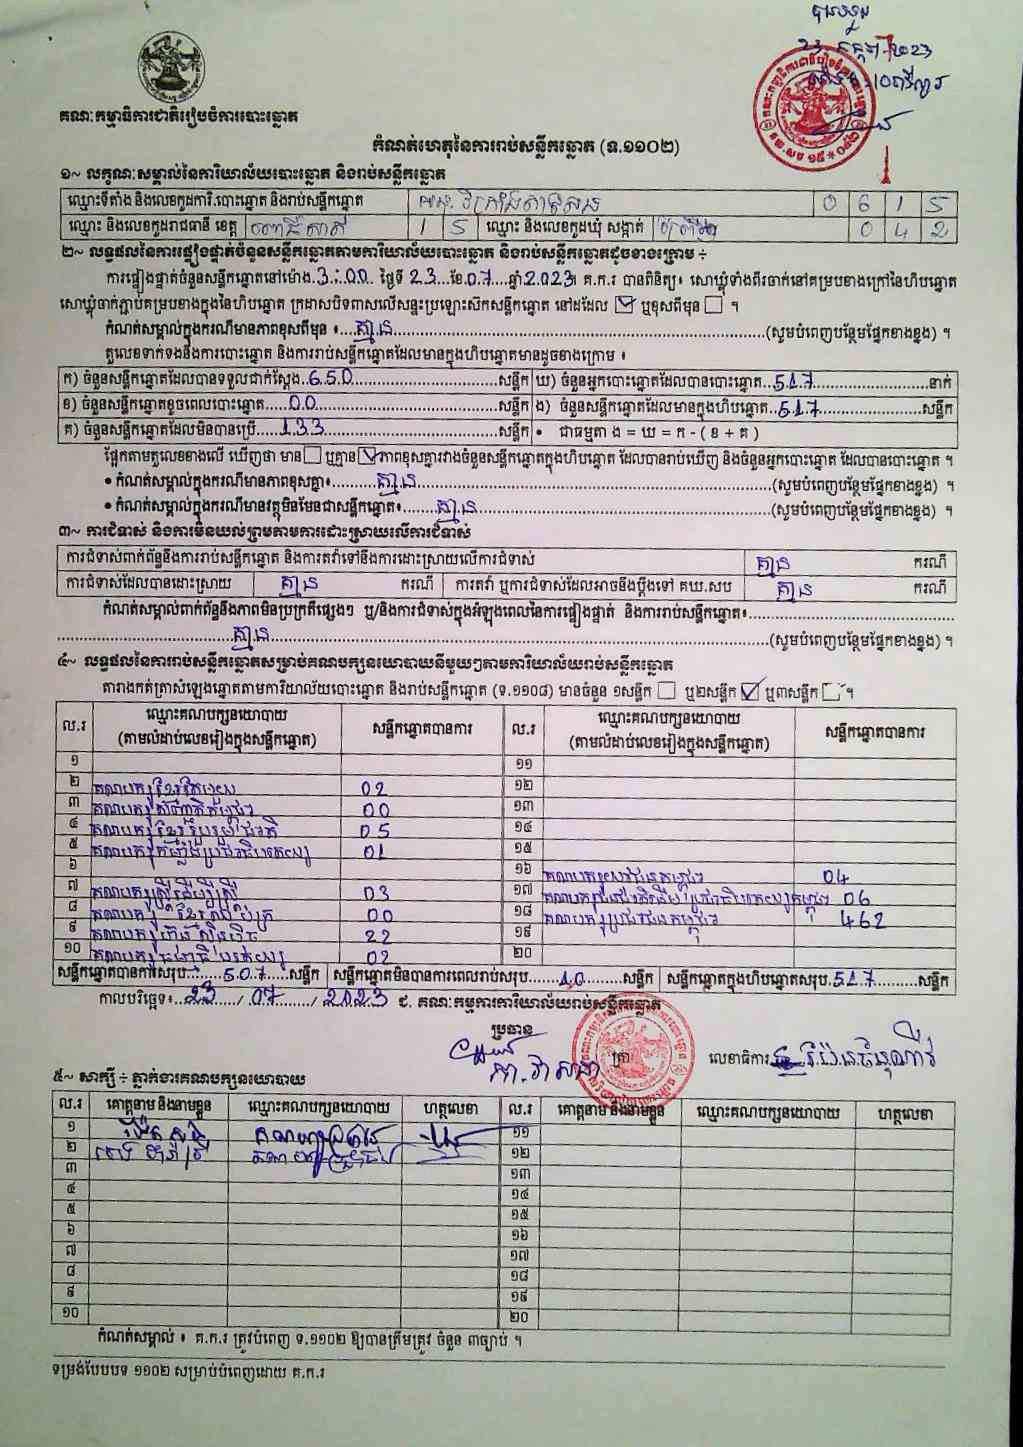 ២៣ កក្កដា ២០២៣
គណៈកម្មាធិការជាតិរៀបចំការបោះឆ្នោត
កំណត់ហេតុនៃការរាប់សន្លឹកឆ្នោត (ទ.១១០២)
១~ លក្ខណៈសម្គាល់នៃការិយាល័យបោះឆ្នោត និងរាប់សន្លឹកឆ្នោត
ឈ្មោះទីតាំង និងលេខកូដការិ.បោះឆ្នោត និងរាប់សន្លឹកឆ្នោត 0 6 1 5
ឈ្មោះ និងលេខកូដរាជធានី ខេត្ត ពោធិ៍សាត់ 1 5 ឈ្មោះ និងលេខកូដឃុំ សង្កាត់ 0 4 2
២~ លទ្ធផលនៃការផ្ទៀងផ្ទាត់ចំនួនសន្លឹកឆ្នោតតាមការិយាល័យបោះឆ្នោត និងរាប់សន្លឹកឆ្នោតដូចខាងក្រោម ÷
ការផ្ទៀងផ្ទាត់ចំនួនសន្លឹកឆ្នោតនៅម៉ោង 3:00 ថ្ងៃទី 23 ខែ 07 ឆ្នាំ 2023 គ.ក.រ បានពិនិត្យ៖ សោឃ្លុំទាំងពីរចាក់នៅគម្របខាងក្រៅនៃហិបឆ្នោត
សោឃ្លុំចាក់ភ្ជាប់គម្របខាងក្នុងនៃហិបឆ្នោត ក្រដាសបិទពាសលើសន្ទះប្រឡោះសឹកសន្លឹកឆ្នោត នៅដដែល ☑ ឬខុសពីមុន ☐ ។
កំណត់សម្គាល់ក្នុងករណីមានភាពខុសពីមុន ៖ គ្មាន (សូមបំពេញបន្ថែមផ្នែកខាងខ្នង) ។
តួលេខទាក់ទងនឹងការបោះឆ្នោត និងការរាប់សន្លឹកឆ្នោតដែលមានក្នុងហិបឆ្នោតមានដូចខាងក្រោម ៖
ក) ចំនួនសន្លឹកឆ្នោតដែលបានទទួលជាក់ស្តែង 650 សន្លឹក ឃ) ចំនួនអ្នកបោះឆ្នោតដែលបានបោះឆ្នោត 517 នាក់
ខ) ចំនួនសន្លឹកឆ្នោតខូចពេលបោះឆ្នោត 00 សន្លឹក ង) ចំនួនសន្លឹកឆ្នោតដែលមានក្នុងហិបឆ្នោត 517 សន្លឹក
គ) ចំនួនសន្លឹកឆ្នោតដែលមិនបានប្រើ 133 សន្លឹក • ជាធម្មតា ង = ឃ = ក - ( ខ + គ )
ផ្អែកតាមតួលេខខាងលើ ឃើញថា មាន ☐ ឬគ្មាន ☑ ភាពខុសគ្នារវាងចំនួនសន្លឹកឆ្នោតក្នុងហិបឆ្នោត ដែលបានរាប់ឃើញ និងចំនួនអ្នកបោះឆ្នោត ដែលបានបោះឆ្នោត ។
• កំណត់សម្គាល់ក្នុងករណីមានភាពខុសគ្នា៖ គ្មាន (សូមបំពេញបន្ថែមផ្នែកខាងខ្នង) ។
• កំណត់សម្គាល់ក្នុងករណីមានវត្ថុមិនមែនជាសន្លឹកឆ្នោត៖ គ្មាន (សូមបំពេញបន្ថែមផ្នែកខាងខ្នង) ។
៣~ ការជំទាស់ និងការមិនយល់ព្រមតាមការដោះស្រាយលើការជំទាស់
ការជំទាស់ពាក់ព័ន្ធនឹងការរាប់សន្លឹកឆ្នោត និងការតវ៉ាទៅនឹងការដោះស្រាយលើការជំទាស់ គ្មាន ករណី
ការជំទាស់ដែលបានដោះស្រាយ គ្មាន ករណី ការតវ៉ា ឬការជំទាស់ដែលអាចនឹងប្តឹងទៅ គឃ.សប គ្មាន ករណី
កំណត់សម្គាល់ពាក់ព័ន្ធនឹងភាពមិនប្រក្រតីផ្សេងៗ ឬ/និងការជំទាស់ក្នុងអំឡុងពេលនៃការផ្ទៀងផ្ទាត់ និងការរាប់សន្លឹកឆ្នោត៖
គ្មាន (សូមបំពេញបន្ថែមផ្នែកខាងខ្នង) ។
៤~ លទ្ធផលនៃការរាប់សន្លឹកឆ្នោតសម្រាប់គណបក្សនយោបាយនីមួយៗតាមការិយាល័យរាប់សន្លឹកឆ្នោត
តារាងកត់ត្រាសំឡេងឆ្នោតតាមការិយាល័យបោះឆ្នោត និងរាប់សន្លឹកឆ្នោត (ទ.១១០៨) មានចំនួន ១សន្លឹក ☐ ឬ២សន្លឹក ☑ ឬ៣សន្លឹក ☐ ។
ល.រ ឈ្មោះគណបក្សនយោបាយ (តាមលំដាប់លេខរៀងក្នុងសន្លឹកឆ្នោត) សន្លឹកឆ្នោតបានការ ល.រ ឈ្មោះគណបក្សនយោបាយ (តាមលំដាប់លេខរៀងក្នុងសន្លឹកឆ្នោត) សន្លឹកឆ្នោតបានការ
១ ១១
២ គណបក្សខ្មែរតែមួយ 02 ១២
៣ 00 ១៣
៤ គណបក្សខ្មែររួបរួមជាតិ 05 ១៤
៥ គណបក្សកម្លាំងប្រជាធិបតេយ្យ 01 ១៥
៦ ១៦ គណបក្សយុវជនកម្ពុជា 04
៧ គណបក្សស្ត្រីដើម្បីស្ត្រី 03 ១៧ 06
៨ 00 ១៨ គណបក្សប្រជាជនកម្ពុជា 462
៩ គណបក្សហ្វ៊ុនស៊ិនប៉ិច 22 ១៩
១០ គណបក្សធម្មាធិបតេយ្យ 02 ២០
សន្លឹកឆ្នោតបានការសរុប 507 សន្លឹក សន្លឹកឆ្នោតមិនបានការពេលរាប់សរុប 10 សន្លឹក សន្លឹកឆ្នោតក្នុងហិបឆ្នោតសរុប 517 សន្លឹក
កាលបរិច្ឆេទ៖ 23 / 07 / 2023 ជ. គណៈកម្មការការិយាល័យរាប់សន្លឹកឆ្នោត
ប្រធាន
ត្រា លេខាធិការ
៥~ សាក្សី ÷ ភ្នាក់ងារគណបក្សនយោបាយ
ល.រ គោត្តនាម និងនាមខ្លួន ឈ្មោះគណបក្សនយោបាយ ហត្ថលេខា ល.រ គោត្តនាម និងនាមខ្លួន ឈ្មោះគណបក្សនយោបាយ ហត្ថលេខា
១ ១១
២ ១២
៣ ១៣
៤ ១៤
៥ ១៥
៦ ១៦
៧ ១៧
៨ ១៨
៩ ១៩
១០ ២០
កំណត់សម្គាល់ ៖ គ.ក.រ ត្រូវបំពេញ ទ.១១០២ ឱ្យបានត្រឹមត្រូវ ចំនួន ៣ច្បាប់ ។
ទម្រង់បែបបទ ១១០២ សម្រាប់បំពេញដោយ គ.ក.រ